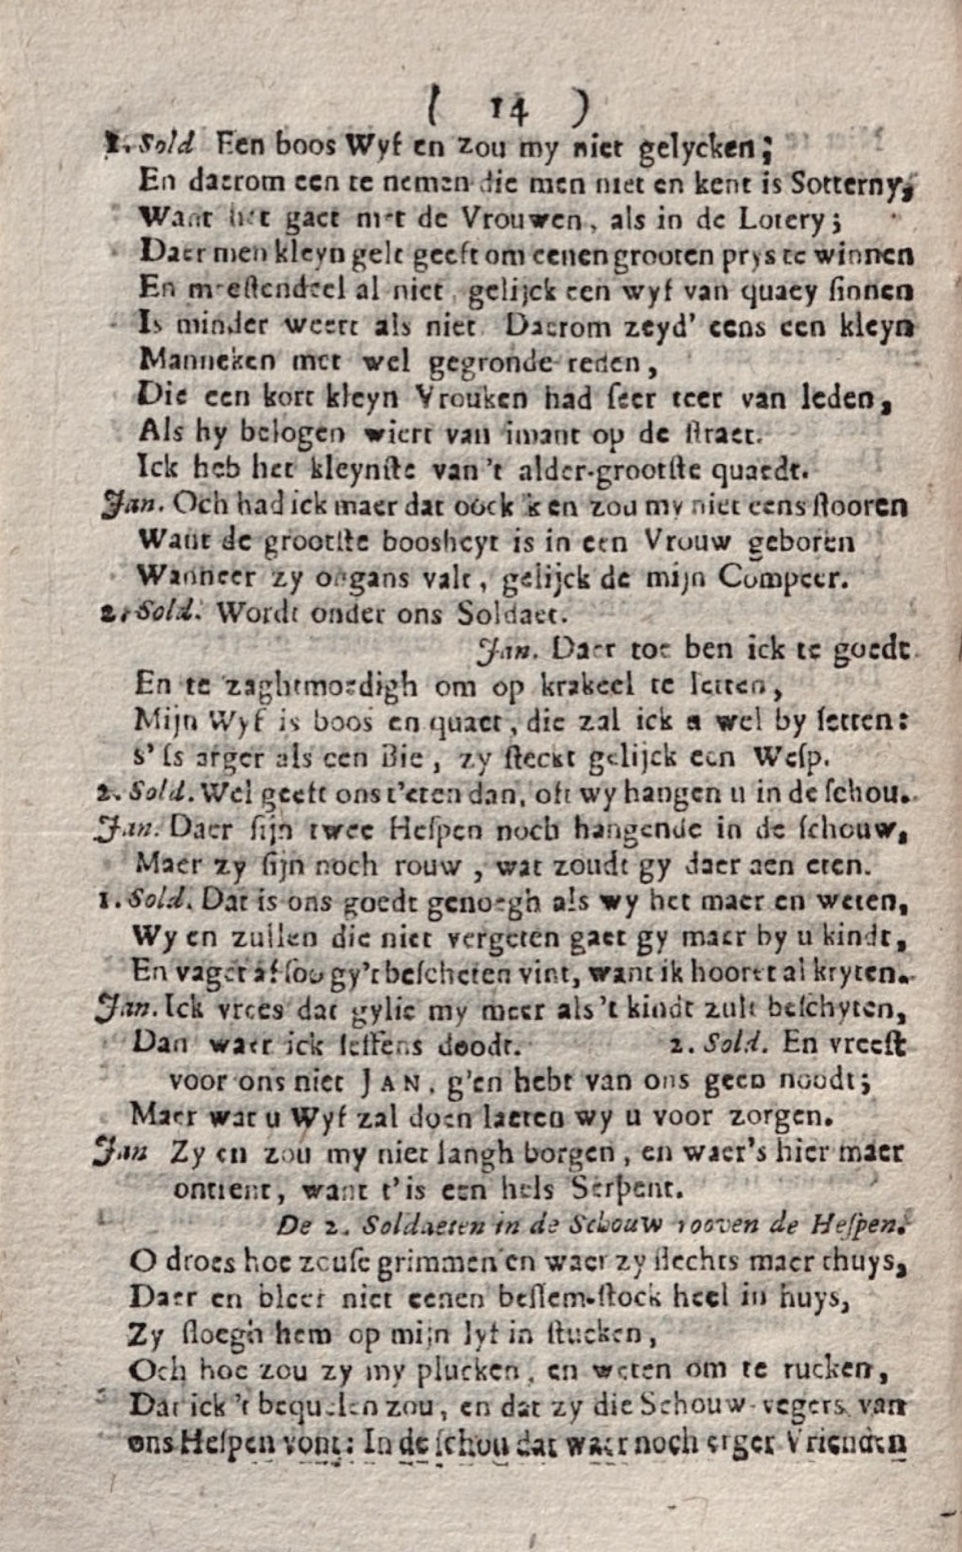 ( 14 )
1. Sold Een boos Wyf en zou my niet gelycken;
En daerom een te nemen die men niet en kent is Sotterny,
Want het gaet met de Vrouwen, als in de Lotery;
Daer men kleyn gelt geeft om eenen grooten prys te winnen
En meestendeel al niet, gelijck een wyf van quaey sinnen
Is minder weert als niet Daerom zeyd' eens een kleyn
Manneken met wel gegronde reden,
Die een kort kleyn Vrouken had seer teer van leden,
Als hy belogen wiert van imant op de straet.
Ick heb het kleynste van 't alder-grootste quaedt.
Jan. Och had ick maer dat oock 'k en zou my niet eens stooren
Want de grootste boosheyt is in een Vrouw geboren
Wanneer zy ongans valt, gelijck de mijn Compeer.
2. Sold. Wordt onder ons Soldaet.
Jan. Daer toe ben ick te goedt
En te zaghtmoedigh om op krakeel te letten,
Mijn Wyf is boos en quaet, die zal ick u wel by setten:
s'is arger als een Bie, zy steckt gelijck een Wesp.
2. Sold. Wel geeft ons t'eten dan, oft wy hangen u in de schou.
Jan. Daer sijn twee Hespen noch hangende in de schouw,
Maer zy sijn noch rouw, wat zoudt gy daer aen eten.
1. Sold. Dat is ons goedt genoegh als wy het maer en weten,
Wy en zullen die niet vergeten gaet gy maer by u kindt,
En vaget af soo gy't bescheten vint, want ik hooret al kryten.
Jan. Ick vrees dat gylie my meer als 't kindt zult beschyten,
Dan waer ick seffens doodt. 2. Sold. En vreest
voor ons niet JAN, g'en hebt van ons geen noodt;
Maer wat u Wyf zal doen laeten wy u voor zorgen.
Jan Zy en zou my niet langh borgen, en waer's hier maer
ontrent, want t'is een hels Serpent.
De 2. Soldaeten in de Schouw rooven de Hespen.
O droes hoe zouse grimmen en waer zy slechts maer thuys,
Daer en bleef niet eenen bessem-stock heel in huys,
Zy sloegh hem op mijn lyf in stucken,
Och hoe zou zy my plucken, en weten om te rucken,
Dat ick 't bequelen zou, en dat zy die Schouw-vegers van
ons Hespen vont: In de schou dat waer noch erger Vrienden